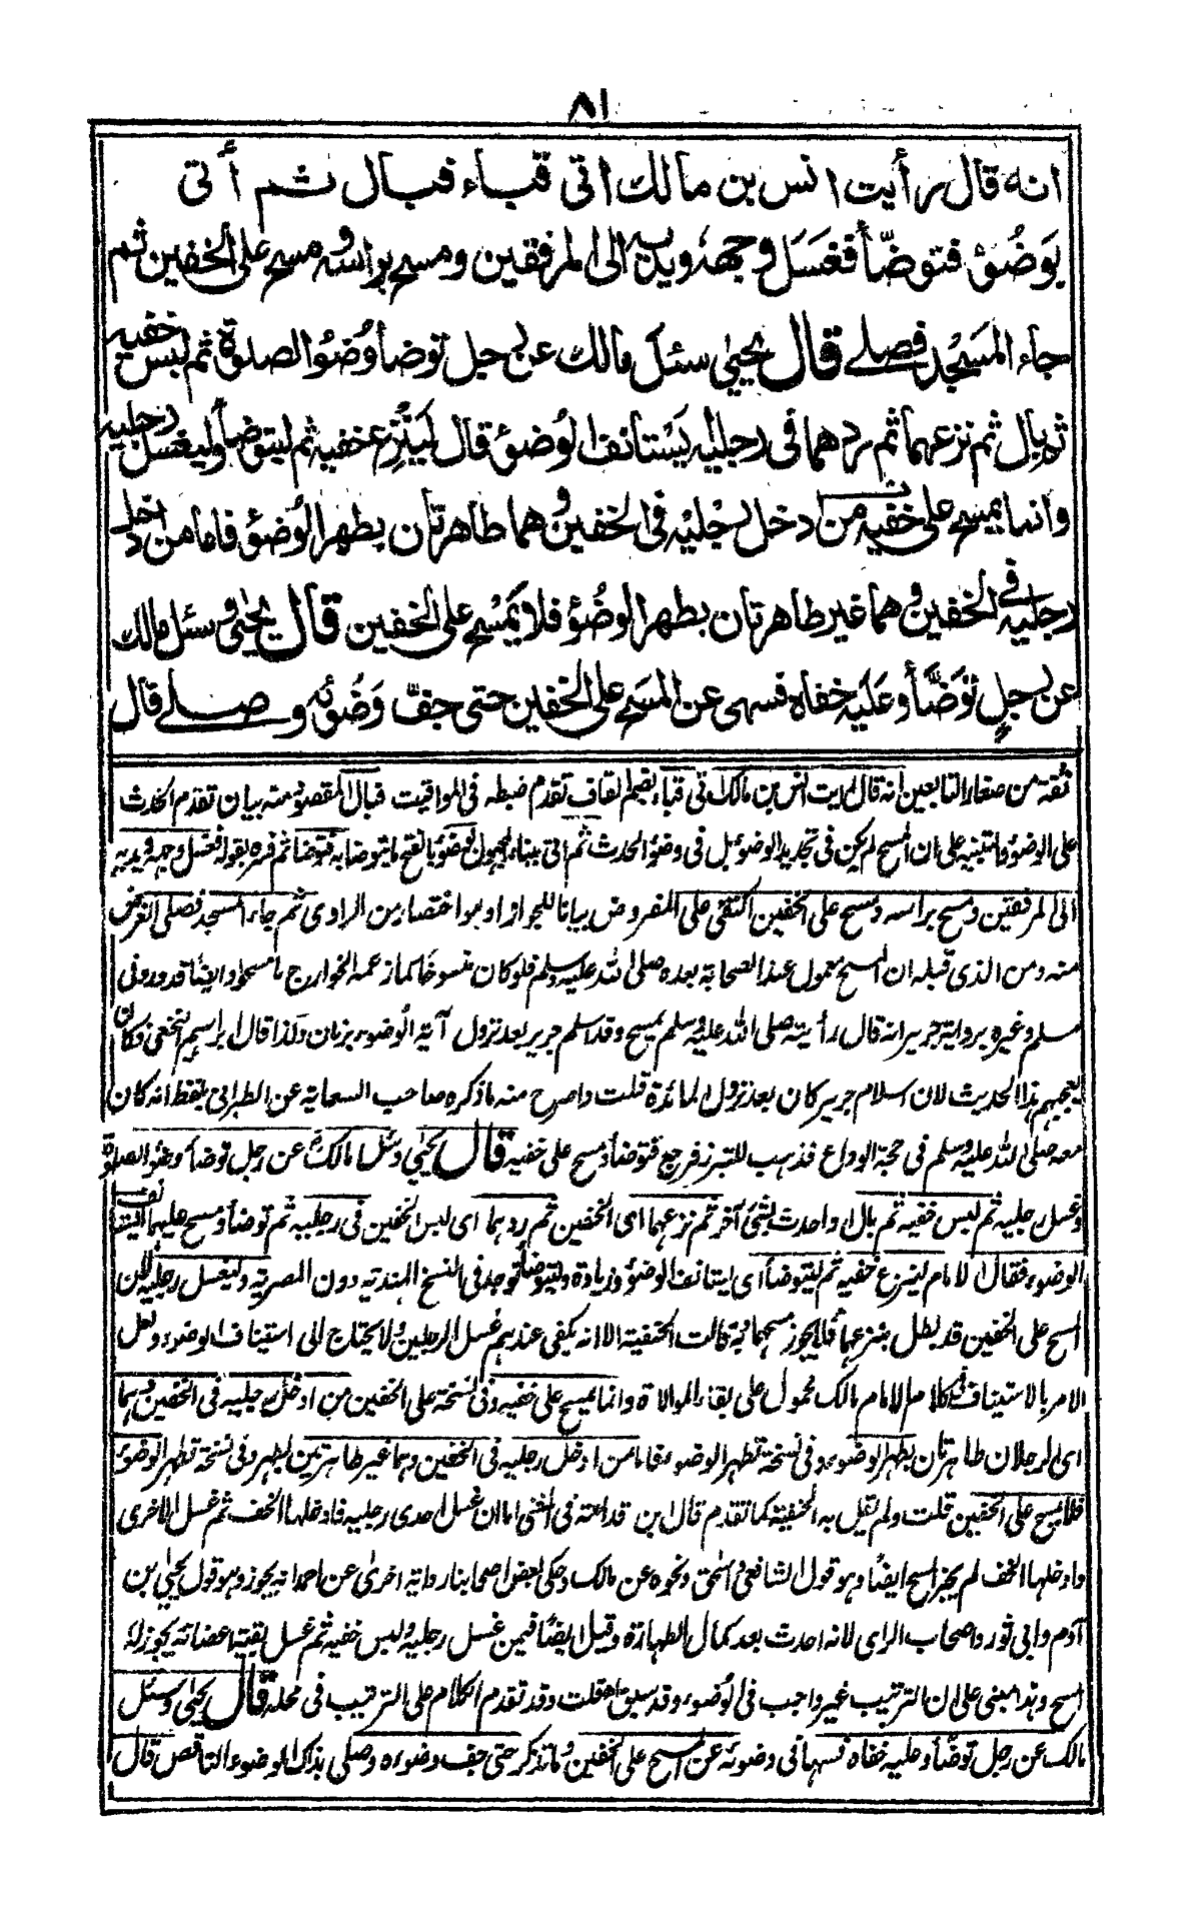 ٨١
انه قال رأيت انس بن مالك اتى قباء فبال ثم أتى
بوَضُوْئ فتوضّأ فغسَل وجهه ويديه الى المرفقين ومسح براسه ومسح على الخفين ثم
جاء المسَجْد فصلے قال يحيٰى سئل مالك عن رجل توضأ وضُؤ الصلوة ثم لبس خفيه
ثم بال ثم نزعهما ثم ردهما فى رجليه يَسْتانف الوُضوْئ قال لِيَنْزِع خفيه ثم ليتوضأ وليغسل رجليه
وانما يمسح على خفيه من دخل رجْليْه فى الخفين وهما طاهرتان بطهر الوُضوْئ فاما من ادخل
رجليه فى الخفين وهما غير طاهرتان بطهر الوضُوْء فلا يَمْسَح على الخفين قال يحيٰى وسئل مالك
عن رجل تَوَضَّأ وعَلَيه خفاه فسهى عن المسَح على الخفين حتى جفّ وَضُوْئه وصلے قال
ثقة من صغار التابعين انه قال رايت انس بن مالك اتى قباء بضم القاف تقدم ضبطه فى المواقيت فبال المقصود منه بيان تقدم الحدث
على الوضوء والتنبيه على ان المسح لم يكن فى تجديد الوضوء بل فى وضوء الحدث ثم اتى ببناء المجهول بوَضوء بالفتح ما يتوضأ به فتوضأ ثم فسره بقوله فغسل وجهه ويديه
الى المرفقين ومسح براسه ومسح على الخفين اكتفى على المفروض بيانا للجواز او هو اختصار من الراوى ثم جاء المسجد فصلى الغرض
منه ومن الذى قبله ان المسح معمول عند الصحابة بعده صلى الله عليه وسلم فلو كان منسوخا كما زعمه الخوارج ما مسحوا وايضا قد روى
مسلم وغيره برواية جرير انه قال رأيته صلى الله عليه وسلم يمسح وقد اسلم جرير بعد نزول آية الوضوء بزمان ولذا قال ابراهيم النخعى فكان
يعجبهم هذا الحديث لان اسلام جرير كان بعد نزول المائدة قلت واصرح منه ما ذكره صاحب السعاية عن الطبرانى بلفظ انه كان
معه صلى الله عليه وسلم فى حجة الوداع فذهب للتبرز فرجع فتوضأ ومسح على خفيه قال يحيٰى وسئل مالك عن رجل توضأ وضوء الصلوة
وغسل رجليه ثم لبس خفيه ثم بال او احدث بشئ آخر ثم نزعهما اى الخفين ثم ردهما اى لبس الخفين فى رجليه ثم توضأ ومسح عليهما ايستانف
الوضوء فقال الامام لينزع خفيه ثم ليتوضأ اى ليستانف الوضوء وزيادة وليتوضأ توجد فى النسخ الهندية دون المصرية وليغسل رجليه لان
المسح على الخفين قد بطل بنزعهما فلا يجوز مسحهما وبه قالت الحنفية الا انه يكفى عندهم غسل الرجلين ولا يحتاج الى استيناف الوضوء ولعل
الامر بالاستيناف فى كلام الامام مالك محمول على بقاء الموالاة وانما يمسح على خفيه وفى نسخة على الخفين من ادخل رجليه فى الخفين وهما
اى الرجلان طاهرتان بطهر الوضوء وفى نسخة تطهر الوضوء فاما من ادخل رجليه فى الخفين وهما غير طاهرتين بطهر وفى نسخة تطهر الوضوء
فلا يمسح على الخفين قلت ولم يقل به الحنفية كما تقدم قال ابن قدامة فى المغنى اما ان غسل احدى رجليه فادخلها الخف ثم غسل الاخرى
وادخلها الخف لم يجز المسح ايضا وهو قول الشافعى واسحٰق ونحوه عن مالك وحكى بعض اصحابنا رواية اخرىٰ عن احمد انه يجوز وهو قول يحيٰى بن
آدم وابى ثور واصحاب الراى لانه احدث بعد كمال الطهارة وقيل ايضا فيمن غسل رجليه ولبس خفيه ثم غسل بقية اعضائه يجوز له
المسح وهذا مبنى على ان الترتيب غير واجب فى الوُضوء وقد سبق اه قلت وقد تقدم الكلام على الترتيب فى محله قال يحيٰى وسئل
مالك عن رجل توضّأ وعليه خفاه فسها فى وضوئه عن المسح على الخفين وما تذكر حتى جف وضوءه وصلى بذاك الوضوء الناقص قال